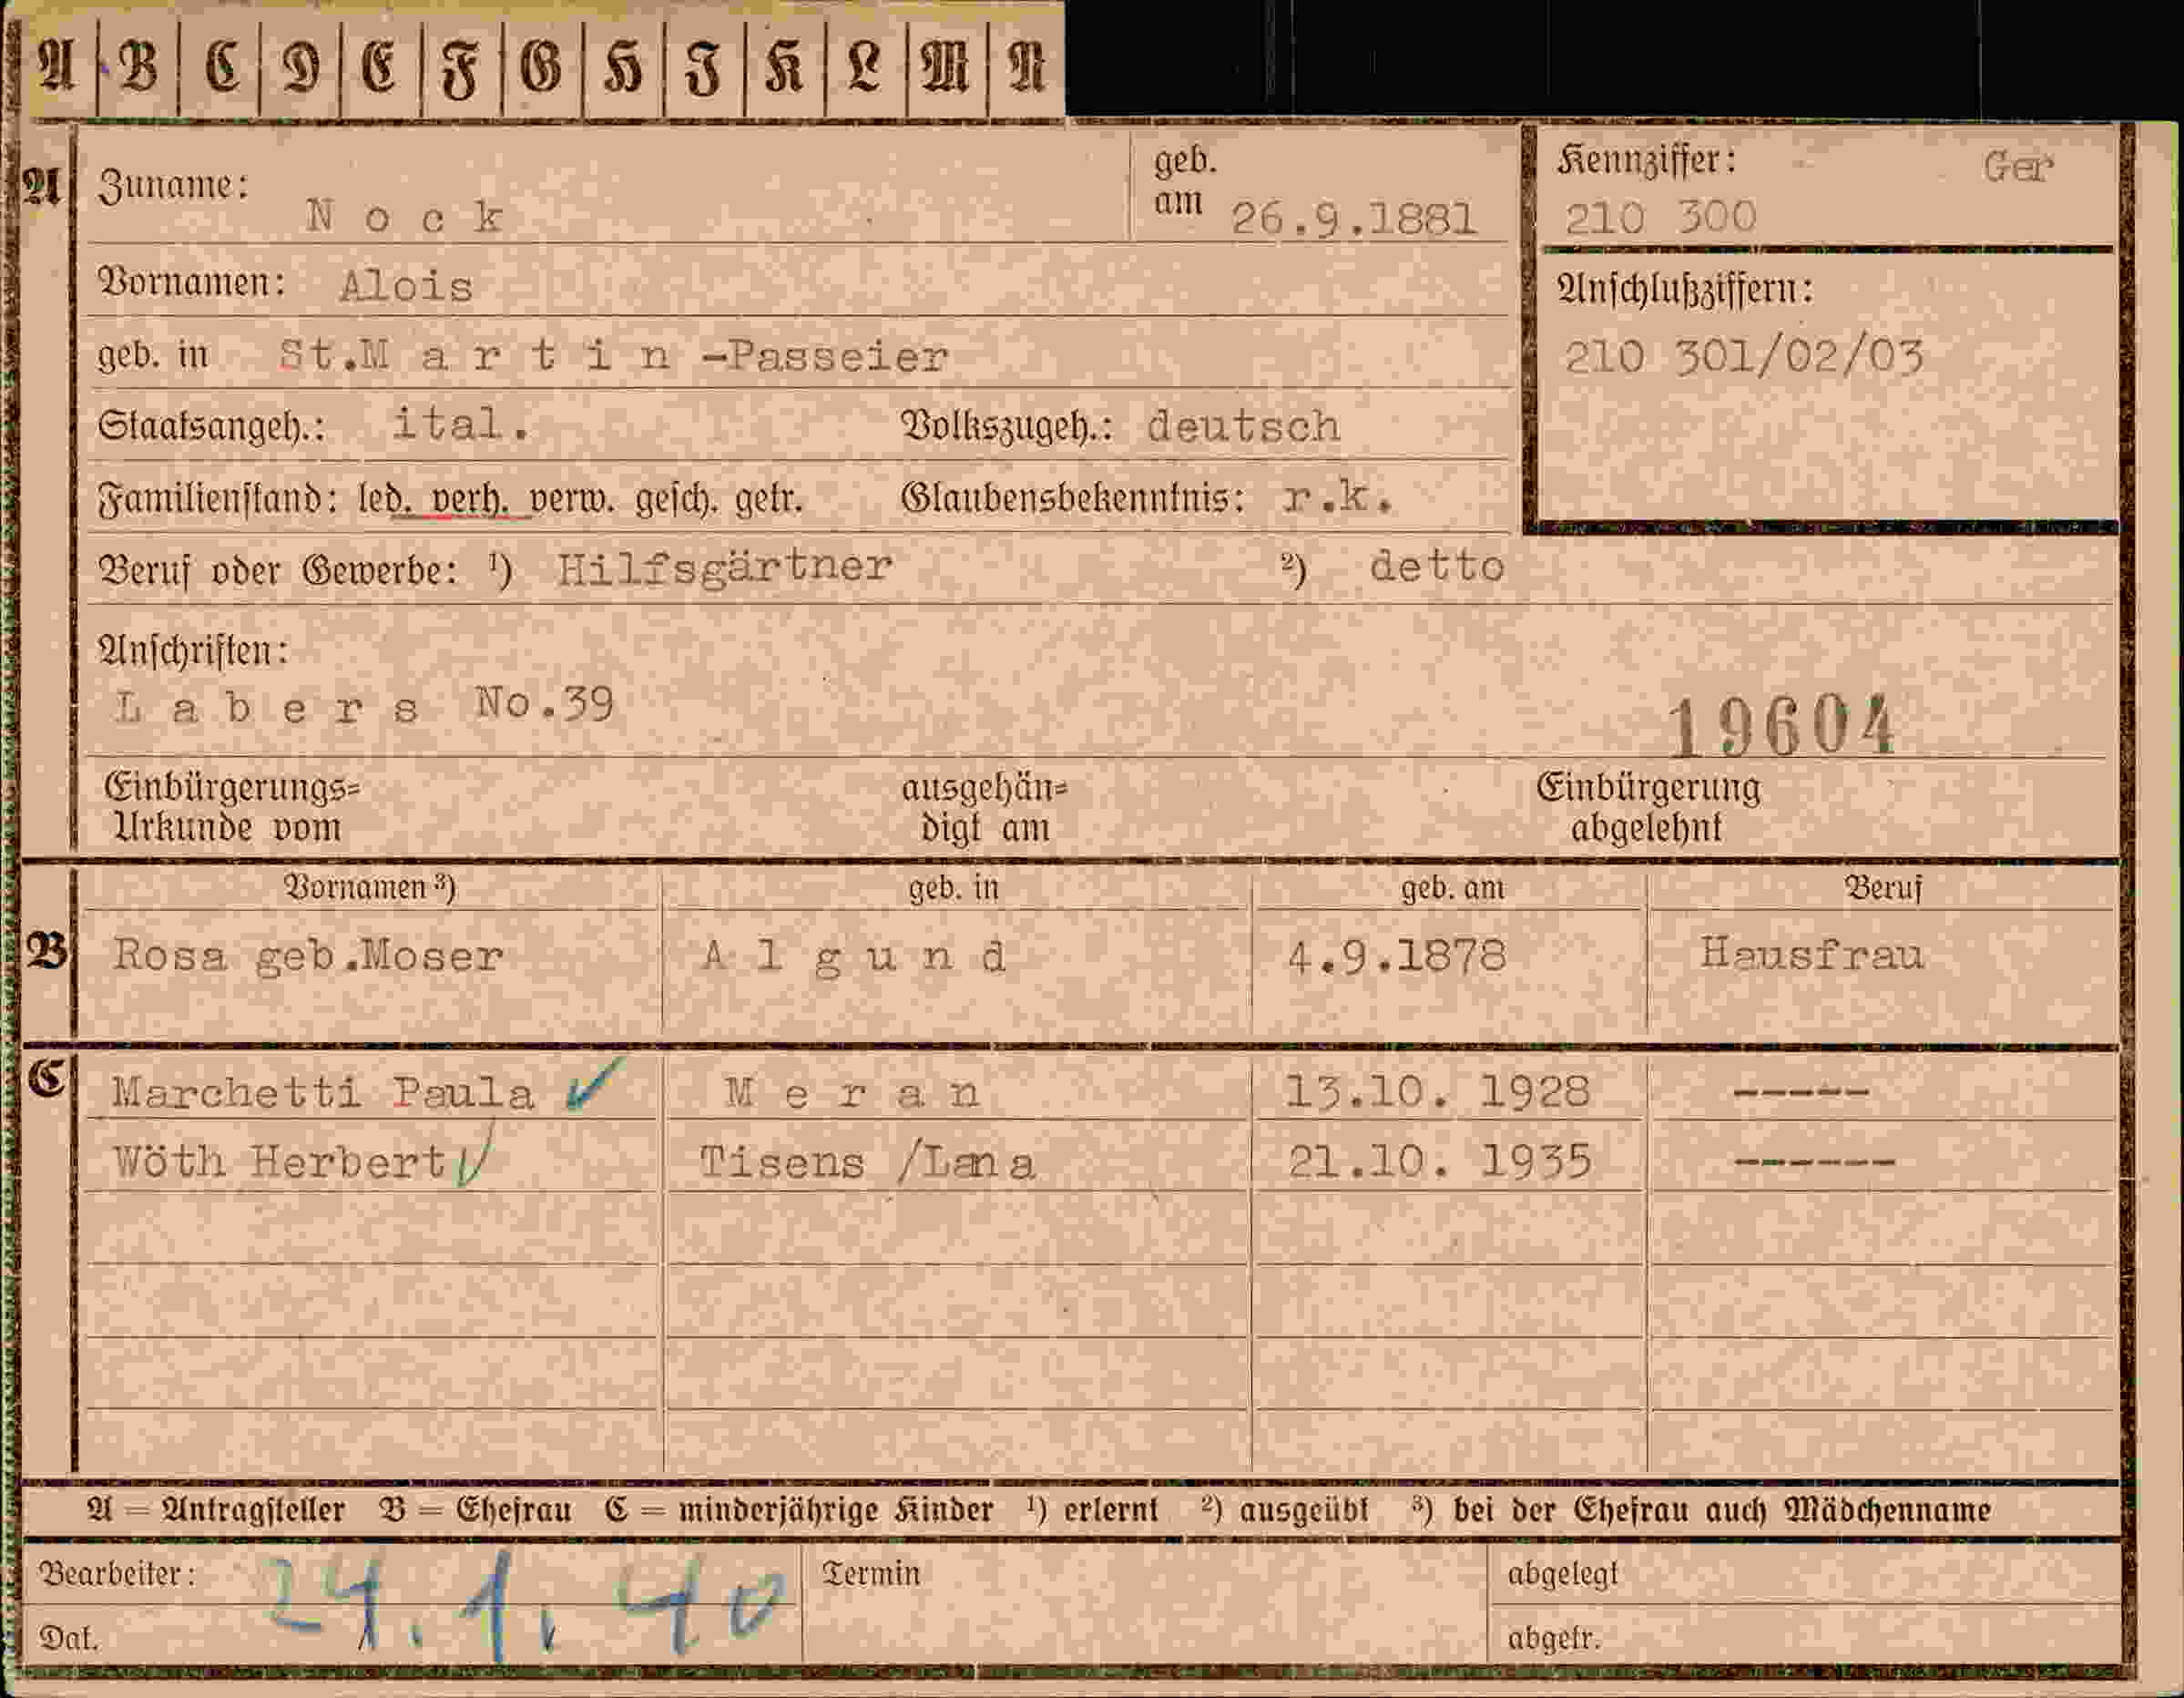 A B C D E F G H I K L M N
A Zuname: Nock geb. am 26.9.1881 Kennziffer: Ger
210 300
Vornamen: Alois Anschlußziffern:
geb. in St.Martin-Passeier 210 301/02/03
Staatsangeh.: ital. Volkszugeh.: deutsch
Familienstand: led. verh. verw. gesch. getr. Glaubensbekenntnis: r.k.
Beruf oder Gewerbe: ¹) Hilfsgärtner ²) detto
Anschriften:
Labers No.39 19604
Einbürgerungs= ausgehän= Einbürgerung
Urkunde vom digt am abgelehnt
Vornamen ³) geb. in geb. am Beruf
B Rosa geb.Moser Algund 4.9.1878 Hausfrau
C Marchetti Paula ✓ Meran 13.10. 1928 -----
Wöth Herbert ✓ Tisens /Lana 21.10. 1935 ------
A = Antragsteller B = Ehefrau C = minderjährige Kinder ¹) erlernt ²) ausgeübt ³) bei der Ehefrau auch Mädchenname
Bearbeiter: 24.1.40 Termin abgelegt
Dat. abgetr.